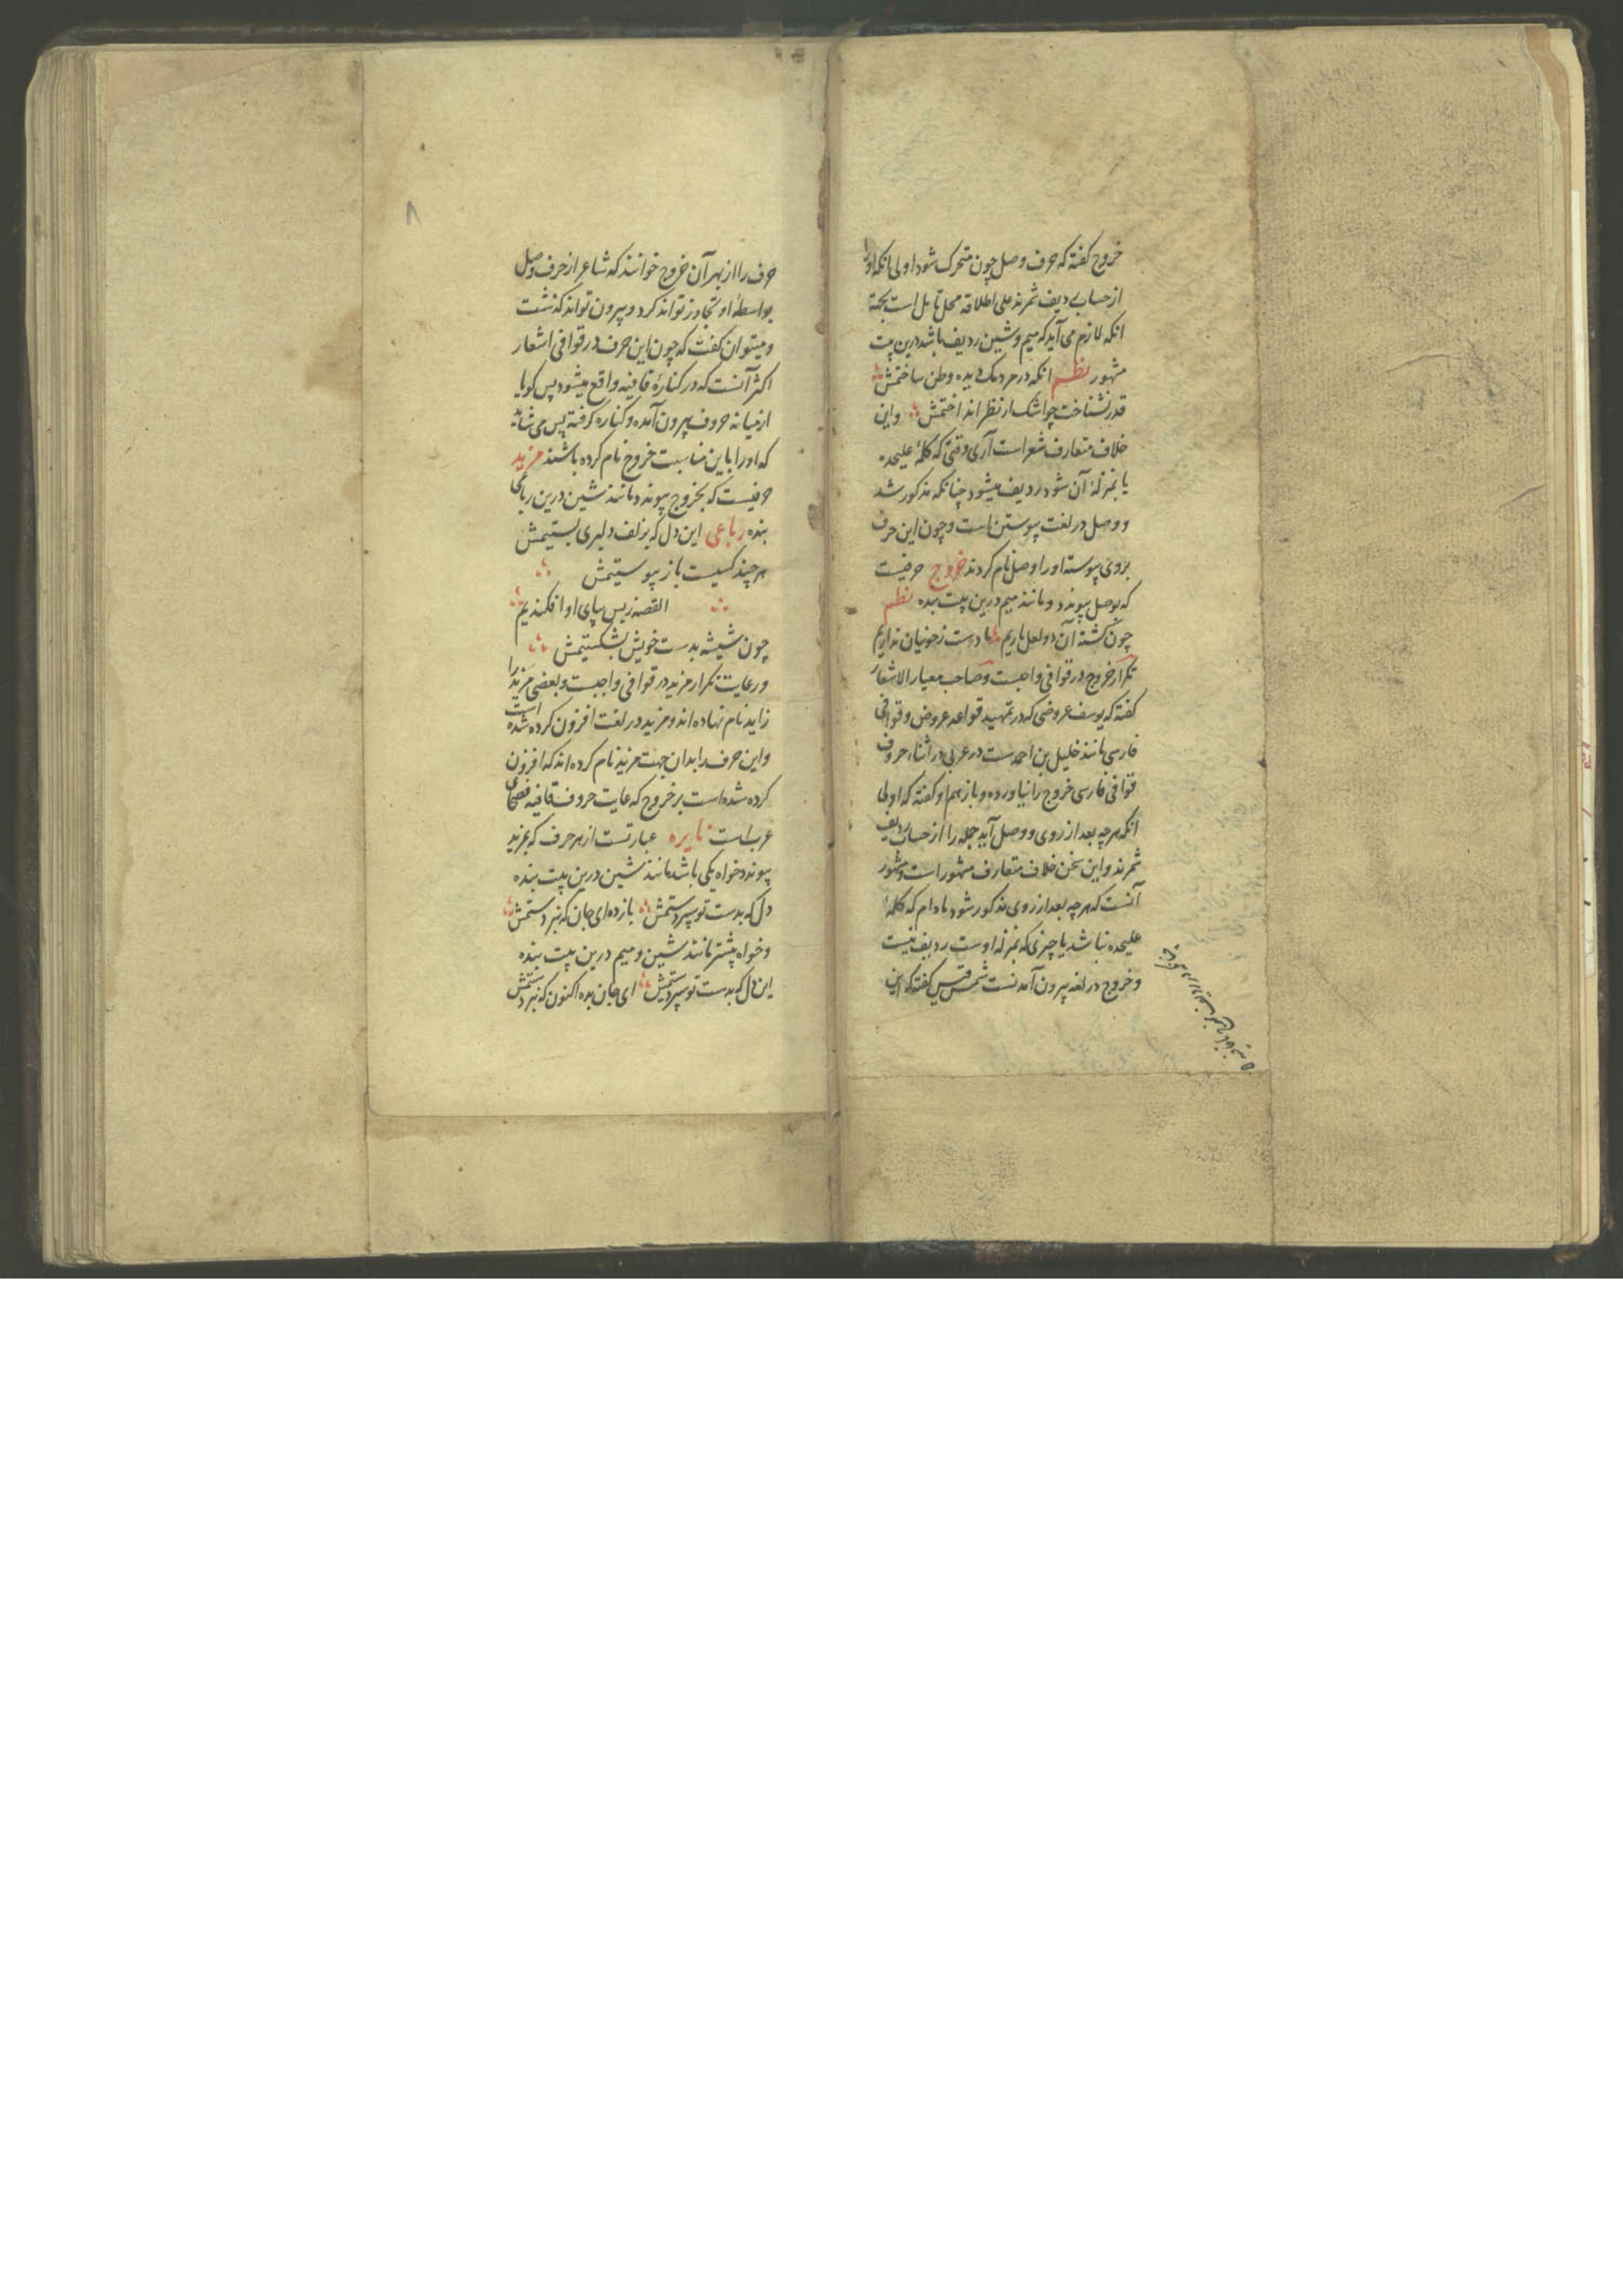 خروج گفته که حرف وصل چون متحرک شود اولی انکه اورا
از حساب ردیف شمرند علی اطلاقه محل تامل است بجهة
انکه لازم می آید که میم و شین ردیف باشد درین بیت
مشهور نظم انکه در مردمک دیده وطن ساختمش
قدر نشناخت چو اشک از نظر انداختمش واین
خلاف متعارف شعراست آری وقتی که کلمهٔ علیحده
یا بمنزلهٔ آن شود ردیف میشود چنانکه مذکور شد
و وصل در لغت پیوستن است و چون این حرف
بروی پیوسته اورا وصل نام کردند خروج حرفیست
که بوصل پیوندد و مانند میم درین بیت بنده نظم
چون کشته آن دو لعل یاریم ما دست ز خونیان نداریم
تکرار خروج در قوافی واجبست و صاحب معیار الاشعار
گفته که یوسف عروضی که در تمهید قواعد عروض و قوافی
فارسی مانند خلیل بن احمدست در عربی در اثناء حروف
قوافی فارسی خروج را نیاورده و باز هم او گفته که اولی
انکه هرچه بعد از روی و وصل آید جمله را از حساب ردیف
شمرند واین سخن خلاف متعارف مشهور است و مشهور
آنست که هرچه بعد از روی مذکور شود مادام که کلمهٔ
علیحده نباشد یا چیزی که بمنزله اوست ردیف نیست
و خروج در لغه بیرون آمدنست شمس قیس گفته که این
حرف را از بهر آن خروج خوانند که شاعر از حرف وصل
بواسطهٔ او تجاوز تواند کرد و بیرون تواند گذشت
و میتوان گفت که چون این حرف در قوافی اشعار
اکثر آنست که در کنارهٔ قافیه واقع میشود پس گویا
از میانه حروف بیرون آمده و کناره گرفته پس می شاید
که اورا باین مناسبت خروج نام کرده باشند مزید
حرفیست که بخروج پیوندد مانند شین درین رباعی
بنده رباعی این دل که بزلف دلبری بستیمش
هر چند گسیست باز پیوستیمش
القصه ز پس بپای او افکندیم
چون شیشه بدست خویش بشکستیمش
و رعایت تکرار مزید در قوافی واجبست و بعضی مزید را
زاید نام نهاده اند و مزید در لغت افزون کرده شده است
واین حرف را بدان جهت مزید نام کرده اند که افزون
کرده شده است بر خروج که غایت حروف قافیه فصحای
عرب است نایره عبارتست از هر حرف که بمزید
پیوندد خواه یکی باشد مانند شین درین بیت بنده
دل که بدست تو سپردستمش باز ده ای جان که نبردستمش
و خواه بیشتر مانند شین و میم درین بیت بنده
این دل که بدست تو سپردستیمش ای جان بده اکنون که نبردستیمش